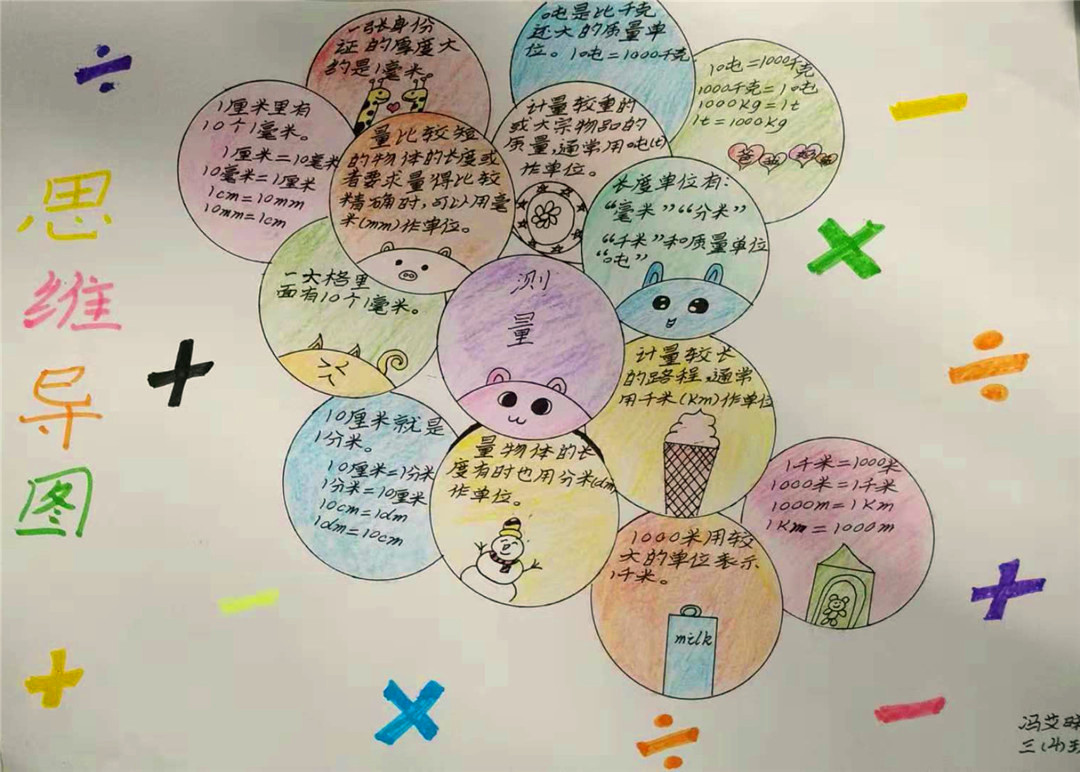 思
维
导
图
一张身份
证的厚度大
约是1毫米
吨是比千克
还大的质量单
位。1吨=1000千克
1吨=1000千克
1000千克=1吨
1000kg=1t
1t=1000kg
1厘米里有
10个1毫米。
1厘米=10毫米
10毫米=1厘米
1cm=10mm
10mm=1cm
量比较短
的物体的长度或
者要求量得比较
精确时,可以用毫
米(mm)作单位。
计量较重的
或大宗物品的
质量,通常用吨(t)
作单位。
长度单位有:
“毫米”“分米”
“千米”和质量单位
“吨”
一大格里
面有10个1毫米。
测
量
计量较长
的路程,通常
用千米(Km)作单位
10厘米就是
1分米。
10厘米=1分米
1分米=10厘米
10cm=1dm
1dm=10cm
量物体的长
度有时也用分米(dm)
作单位。
1千米=1000米
1000米=1千米
1000m=1Km
1Km=1000m
1000米用较
大的单位表示
1千米。
milk
冯艾
三(4)班